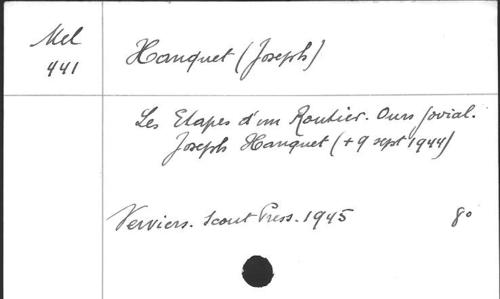 Mel
441
Hanquet (Joseph)
Les Etapes d'un Routier. Ours jovial.
Joseph Hanquet (+9 sept 1944)
Verviers. Scout Press. 1945 8°